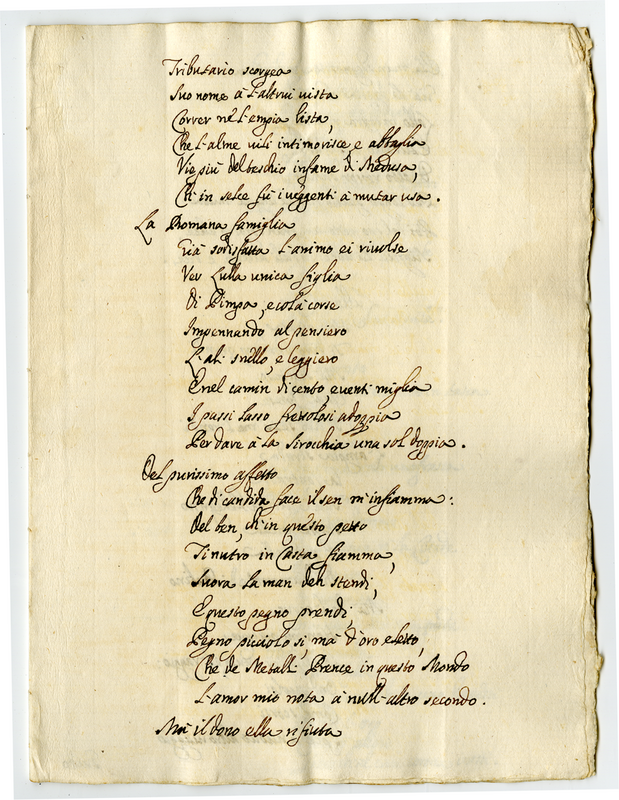 Tributario scorgea
Suo nome à l'altrui uista
Correr nè l'empia lista,
Che l'alme uili intimorisce, e abbaglia
Vie più del teschio infame di Medusa,
Ch'in selce fù i ueggenti à mutar usa.
La Romana famiglia
Già sodisfatta l'animo ei riuolse
Ver Lulla unica figlia
Di Pimpa, e colà corse
Impennando al pensiero
L'ali snello, e leggiero
E nel camin di cento, e uenti miglia
I passi lasso frettolosi adoppia
Per dare à la sirocchia una sol doppia.
Del purissimo affetto
Che di candida face il sen m'infiamma:
Del ben, ch'in questo petto
Ti nutro in casta fiamma,
Suora la man deh stendi,
E questo pegno prendi,
Pegno picciolo sì, mà d'oro eletto,
Che de Metalli Prence in questo Mondo
L'amor mio nota à null'altro secondo.
Mà il dono ella rifiuta